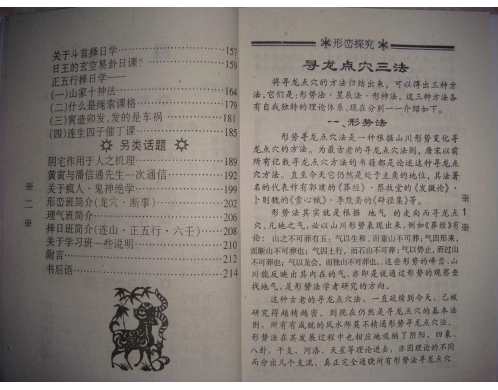 关于斗首择日学 157
日王的玄空易卦日课? 159
正五行择日学
(一)山家十神法 164
(二)什么是绳索课格 179
(三)寅盛卯发,发的是车祸 181
(四)连生四子催丁课 185
※ 另类话题 ※
阴宅作用于人之机理 189
黄寅与潘信通先生一次通信 192
关于疯人·鬼神绝学 199
形峦班简介(龙穴·断事) 202
理气班简介 206
择日班简介(连山·正五行·六壬) 208
关于学习班一些说明 210
附言 212
书后语 214
※二※
※形峦探究※
寻龙点穴三法
将寻龙点穴的方法归结出来,可以得出三种方
法,它们是:形势法、星辰法、形神法,这三种方法各
有自我独特的理论体系,现在分别一一介绍如下。
一、形势法
形势寻龙点穴法是一种根据山川形势变化寻
龙点穴的方法,为最古老的寻龙点穴法则,唐宋以前
所有记载寻龙点穴方法的书籍都是论述这种寻龙点
穴方法,直至今天它仍然是处于主角的地位,其法著
名的代表作有郭璞的《葬经》、蔡牧堂的《发微论》、
卜则巍的《雪心赋》、李默斋的《辟径集》等。
形势法其实就是根据 地气 的走向而寻龙点
穴,凡地之气,必以山川形势表现出来,例如《葬经》有
论: 山之不可葬有五:气以生和,而童山不可葬;气因形来,
而断山不可葬也;气因土行,而石山不可葬;气以势止,而过山
不可葬也;气以龙会,而独山不可葬也。这些形势的峰峦、山
川能反映出其内在的气,亦即是说通过形势的观察查
找地气,是形势法学者研究的方向。
这种古老的寻龙点穴法,一直延续到今天,已被
研究得超精越密,到现在仍然是寻龙点穴的基本法
则,所有有成就的风水师莫不精通形势寻龙点穴法。
形势法在其发展过程中也相应地吸纳了阴阳、四象、
八卦、干支、河洛、天星等理论进去,亦因理论的不同
而分出几个支流,真正完全遵统所有形势寻龙点穴
※1※